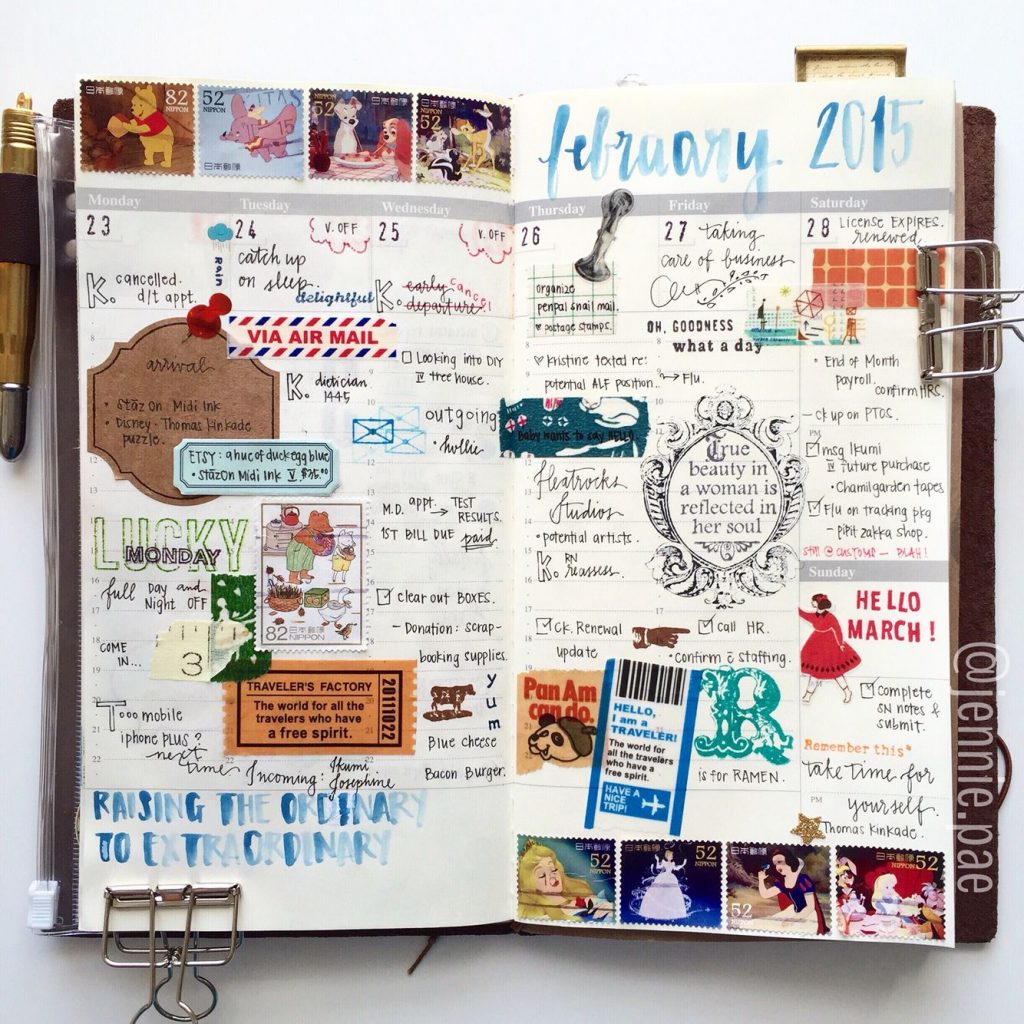 82
NIPPON
日本郵便
52
NIPPON
日本郵便
52
NIPPON
日本郵便
52
日本郵便
february 2015
Monday
23
K. cancelled.
d/t appt.
arrival
• StāzOn Midi Ink
• Disney - Thomas Kinkade
puzzle.
ETSY: a hue of duck egg blue
• StāzOn Midi Ink
LUCKY
MONDAY
full Day and
Night OFF
COME
IN...
3
Tooo mobile
iphone PLUS?
next
time
Tuesday
24
V. OFF
Rain
catch up
on sleep.
delightful
VIA AIR MAIL
K. dietician.
1445
82 日本郵便
NIPPON
TRAVELER'S FACTORY
The world for all the
travelers who have
a free spirit.
20111022
Incoming: Ikumi
Josephine
Wednesday
25
V. OFF
K. early cancel
departure!
Looking into DIY
tree house.
outgoing
• hollie
M.D. appt. → TEST
RESULTS.
1ST BILL DUE paid.
clear out BOXES.
- Donation: scrap-
booking supplies.
yum
Blue cheese
Bacon Burger.
RAISING THE ORDINARY
TO EXTRAORDINARY
Thursday
26
organize
penpal snail mail.
♥ postage stamps.
♡ Kristine texted re:
potential ALF position.
Baby wants to say HELLO.
Fleatrocks
Studios
• potential artists.
K. RN
reassess.
Ck. Renewal
update
Pan Am
can do.
HELLO,
I am a
TRAVELER!
The world for
all the travelers
who have a
free spirit.
HAVE A
NICE
TRIP!
Friday
27 taking
care of business
OH, GOODNESS
what a day
→ Flu.
True
beauty in
a woman is
reflected in
her soul
call HR.
• confirm c̄ staffing.
R
is for RAMEN.
Saturday
28 License EXPIRES.
renewed
• End of Month
payroll.
confirm HRS.
- ck up on PTOS.
PM
msg Ikumi
future purchase
• Chamilgarden tapes
Flu on tracking pkg
- pipit zakka shop.
still @ customs - BLAH!
Sunday
HELLO
MARCH!
Complete
SN notes &
submit.
Remember this*
take Time for
yourself.
PM
Thomas Kinkade.
日本郵便
52
NIPPON
日本郵便
52
NIPPON
日本郵便
52
NIPPON
日本郵便
52
NIPPON
@jennie.pae